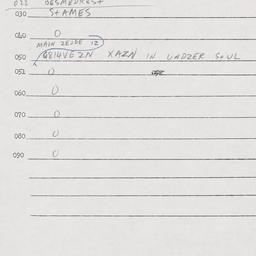 022 DESMEDREST
030 STAMES
040 0
MAIN ZEJDE IZ
050 XAZN IN UNDZER SUL
051 0
060 0
070 0
080 0
090 0